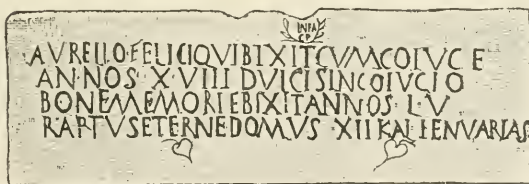 INPA
CP
AVRELIO·FELICIQVIBIXITCVMCOIVCE
AN·NOS X·VIII DVLCISINCOIVCIO
BONEMEMORIEBIXITANNOS·L·V
RAPTVSETERNEDOMVS·XIIKAL·IENVARIAS